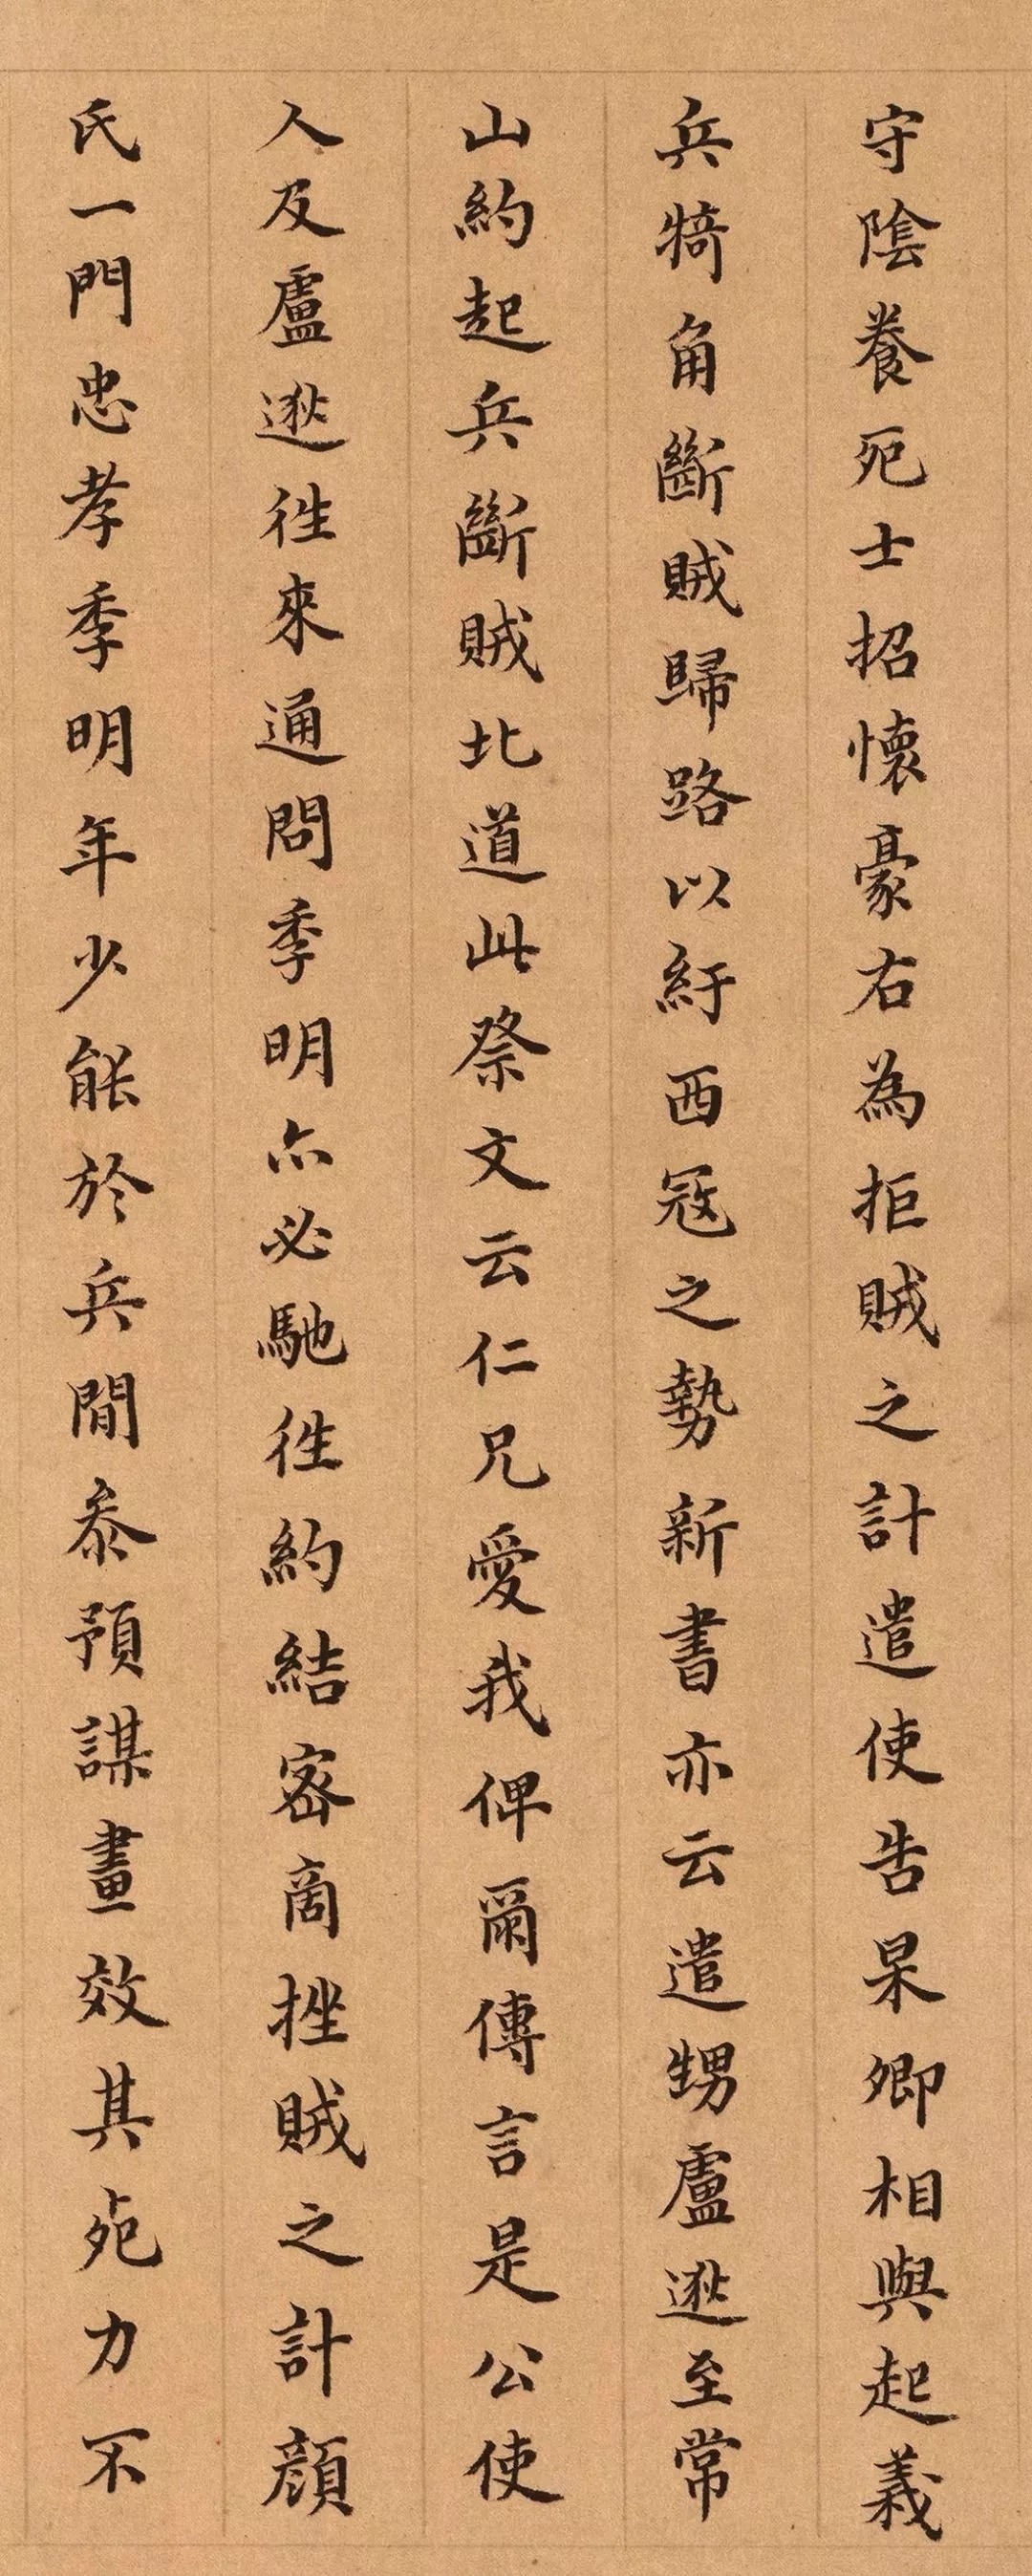 守陰養死士招懷豪右為拒賊之計遣使告杲卿相與起義
兵犄角斷賊歸路以紓西寇之勢新書亦云遣甥盧逖至常
山約起兵斷賊北道此祭文云仁兄愛我俾爾傳言是公使
人及盧逖往來通問季明亦必馳往約結密商挫賊之計顏
氏一門忠孝季明年少能於兵間參預謀畫效其死力不